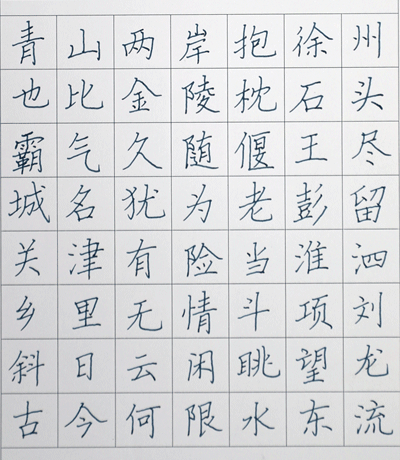 青山两岸抱徐州
也比金陵枕石头
霸气久随偃王尽
城名犹为老彭留
关津有险当淮泗
乡里无情斗项刘
斜日云闲眺望龙
古今何限水东流